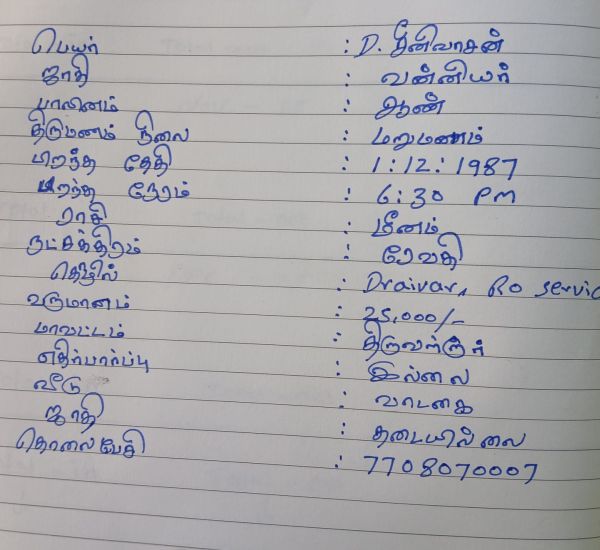 பெயர் : D. சீனிவாசன்
ஜாதி : வன்னியர்
பாலினம் : ஆண்
திருமணம் நிலை : மறுமணம்
பிறந்த தேதி : 1:12:1987
பிறந்த நேரம் : 6:30 PM
ராசி : மீனம்
நட்சத்திரம் : ரேவதி
தொழில் : Draivar, Ro servic
வருமானம் : 25,000/-
மாவட்டம் : திருவள்ளூர்
எதிர்பார்ப்பு : இல்லை
வீடு : வாடகை
ஜாதி : தடையில்லை
தொலைபேசி : 7708070007